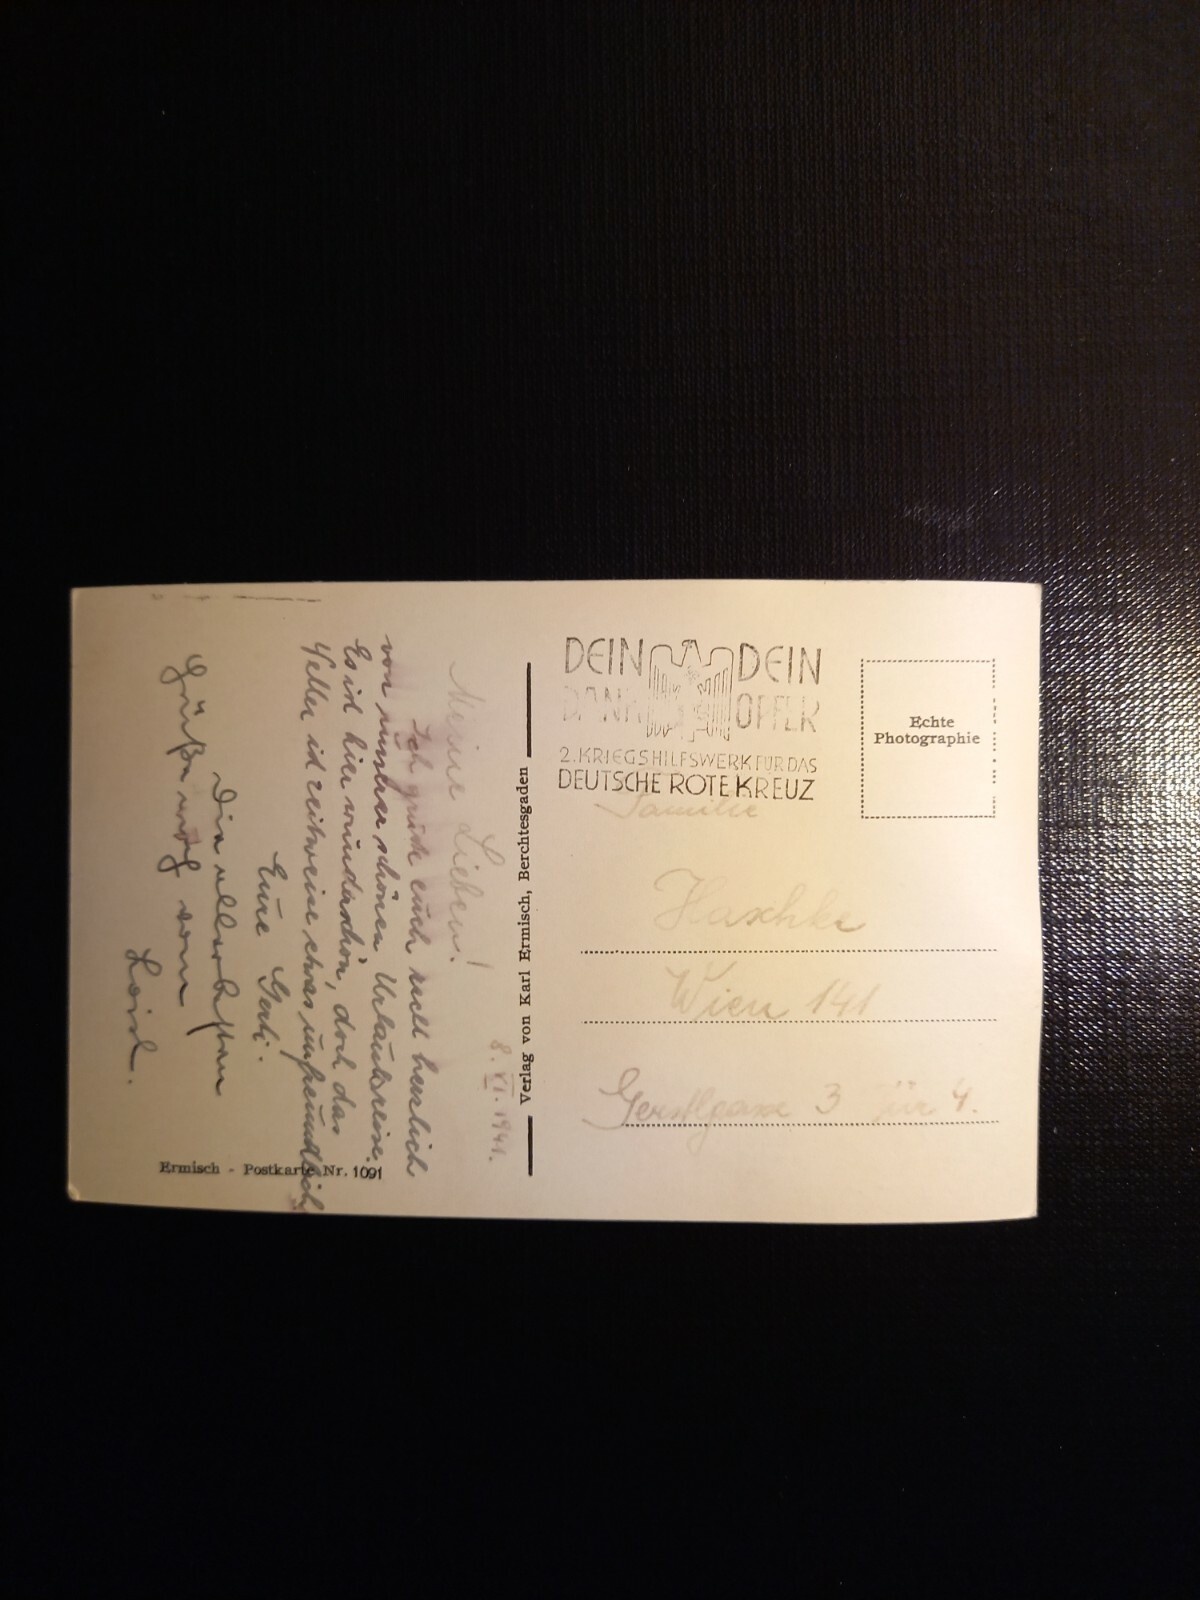 8. VI. 1941.
Meine Lieben!
Ich grüße euch recht herzlich
von unserer schönen Urlaubsreise.
Es ist hier wunderschön, doch das
Wetter ist zeitweise etwas unfreundlich
Eure Gerti.
Die allerbesten
Grüße von
Loisl.
Ermisch - Postkarte Nr. 1091
Verlag von Karl Ermisch, Berchtesgaden
DEIN DEIN
DANK OPFER
2. KRIEGSHILFSWERK FÜR DAS
DEUTSCHE ROTE KREUZ
Echte
Photographie
Familie
Haschke
Wien 141
Gerstlgasse 3 Tür 4.